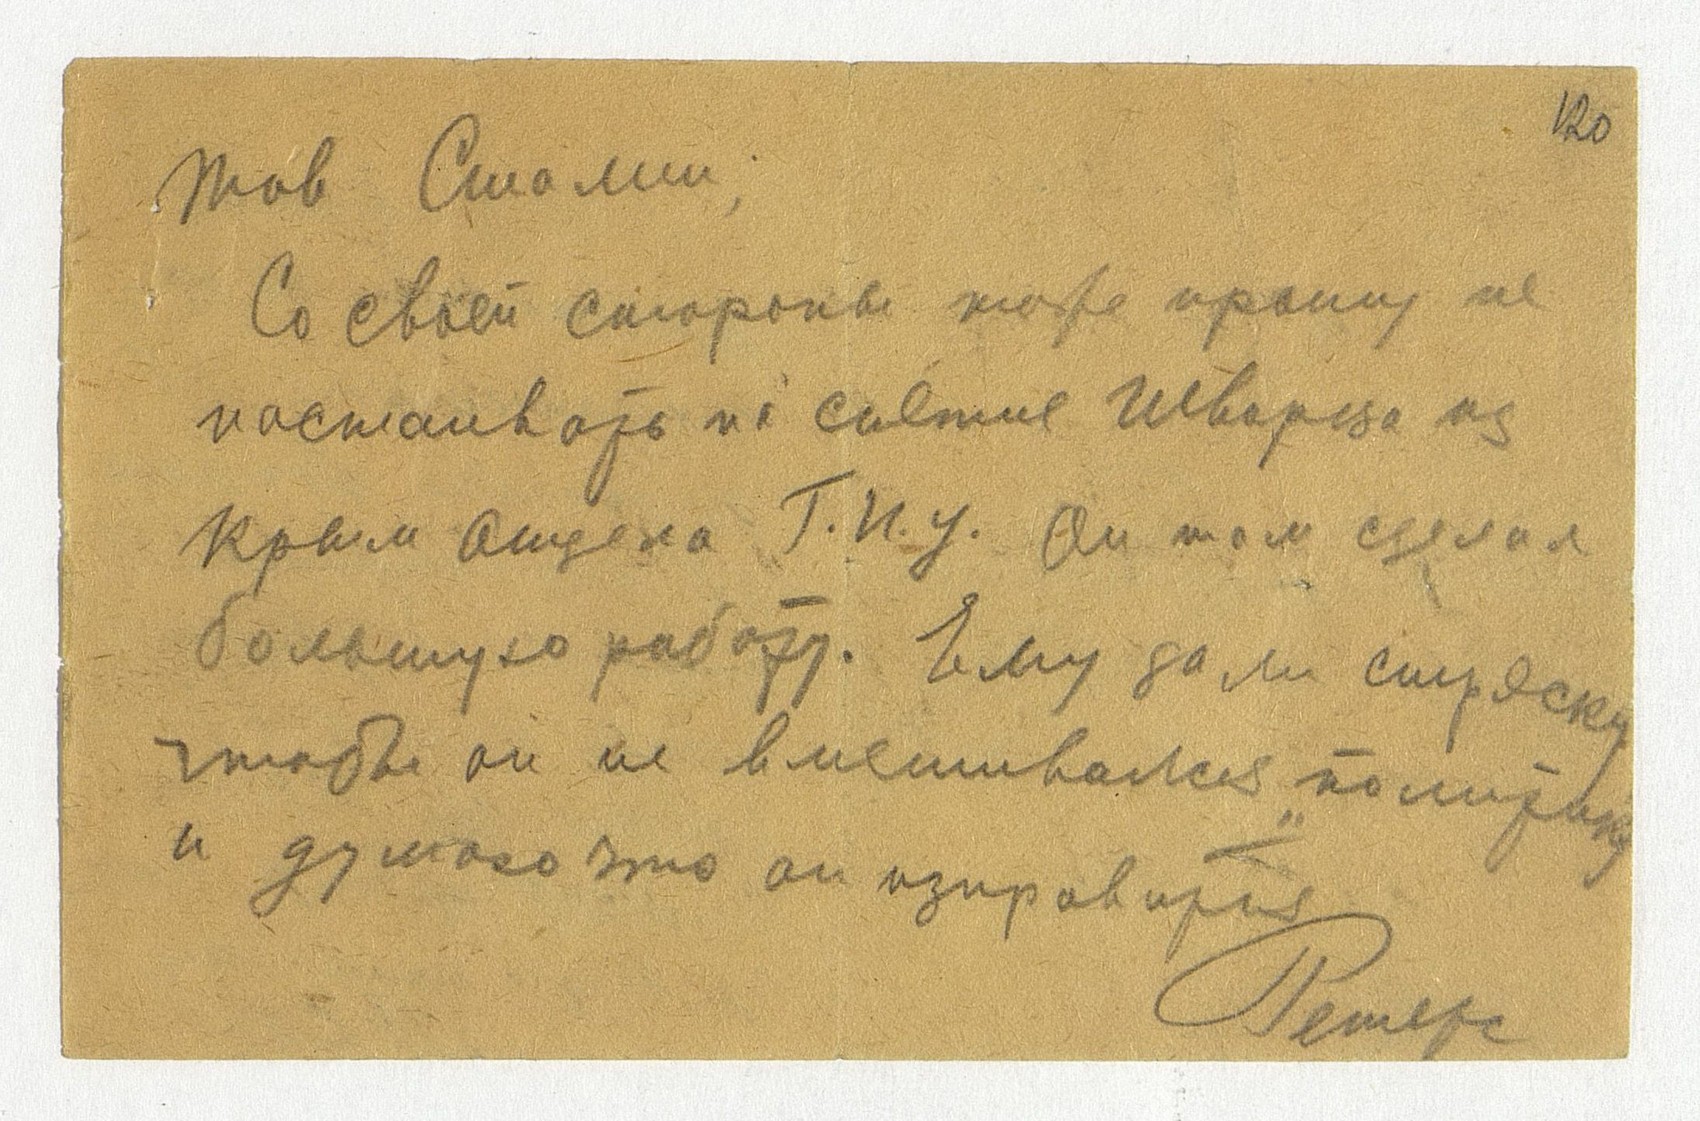 120
Тов Сталин,
Со своей стороны тоже прошу не
настаивать на снятие Шварца из
Крым Отдела Г.П.У. Он там сделал
большую работу. Ему дали стряску
чтобы он не вмешивался „политику"
и думаю что он изправится
Петерс